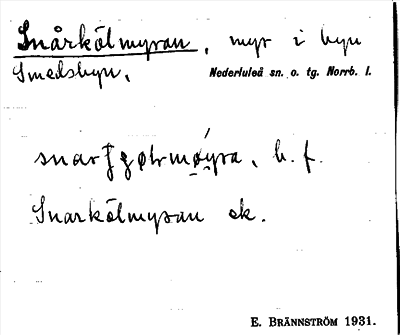 Snårkölmyran, myr i byn
Smedsbyn, Nederluleå sn. o. tg. Norrb. l.
b. f.
Snarkölmyran ek.
E. BRÄNNSTRÖM 1931.